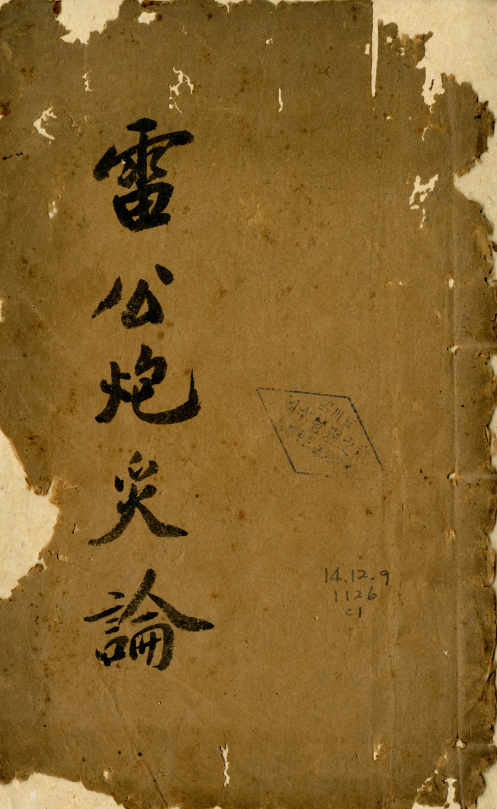 雷公炮炙論
14.12.9
1126
c1